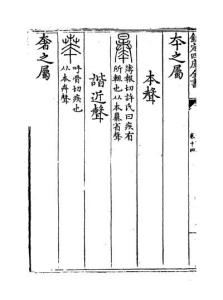 欽定四庫全書
卷十四
夲之屬
本聲
薄報切許氏曰疾有
所趣也从本㬥省聲
諧近聲
呼骨切疾也
从本卉聲
奢之屬